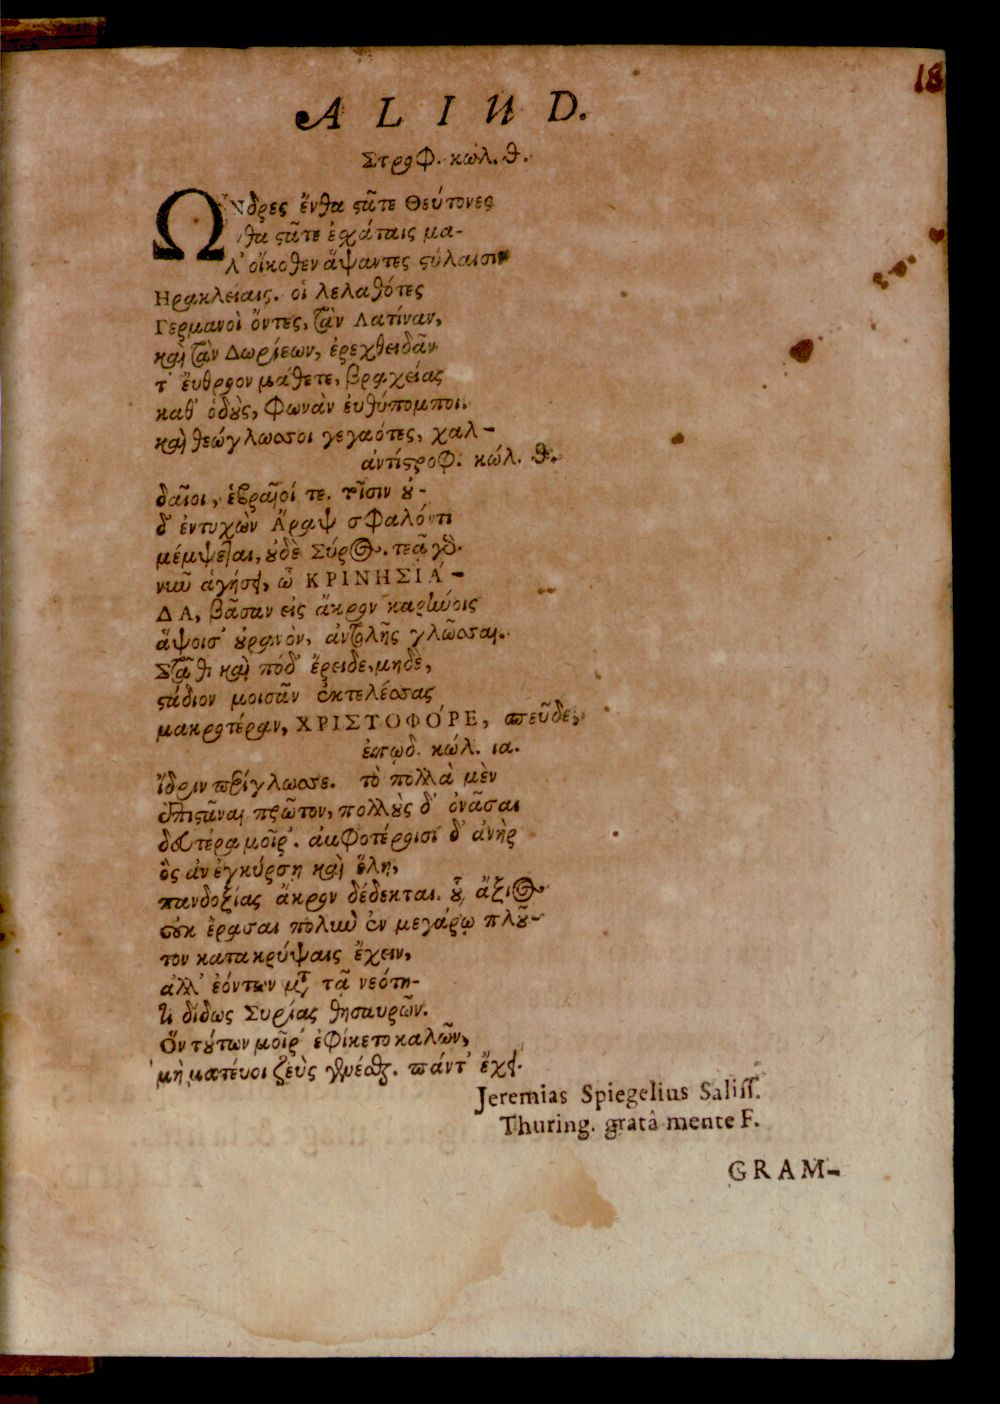 18
ALIUD.
Στροφ. κώλ. θ.
ΩΝδρες ἔνθα στᾶτε Θεύτονες
θα στᾶτε ἐσχάταις μα-
λ' οἴκοθεν ἅψαντες στύλαισιν
Ηρακλείαις. οἱ λελαθότες
Γερμανοὶ ὄντες, τὰν Λατίναν,
καὶ τὰν Δωριέων, ἐρεχθειδᾶν
τ' ἔυθροον μάθετε, βραχείας
καθ' ὁδοὺς, φωνὰν ἐυθύπομποι.
καὶ θεώγλωσσοι γεγαότες, χαλ-
ἀντίστροφ. κώλ. θ.
δαῖοι, ἑβραῖοί τε. τοῖσιν οὐ-
δ' ἐντυχὼν Ἄραψ σφαλόντι
μέμψεται, οὐδὲ Σύρος. τεᾷ γὸ-
νιῦ ἁγήσει, ὦ ΚΡΙΝΗΣΙΆ-
ΔΑ, βᾶσαν εἰς ἄκρον
ἅψοις' οὐρανὸν, ἀντολῆς γλῶσσαι.
Στᾶθι καὶ πόδ' ἔρειδε, μηδὲ,
στάδιον μοισᾶν ἐκτελέσσας
μακροτέραν, ΧΡΙΣΤΟΦΌΡΕ, σπεῦδε,
ἐπῳδ. κώλ. ια.
ἴδριν περίγλωσσε. τὸ πολλὰ μὲν
ἐπιστᾶναι πρῶτον, πολλοὺς δ' ὀνᾶσαι
δευτέρα μοῖρ'. ἀμφοτέροισι δ' ἀνὴρ
ὃς ἂν ἐγκύρσῃ καὶ ἕλῃ,
πανδοξίας ἄκρον δέδεκται. οὗ ἄξιος
οὐκ ἔρασαι πολιὺ ἐν μεγάρῳ πλοῦ-
τον κατακρύψαις ἔχειν,
ἀλλ' ἐόντων μετὰ τᾷ νεότη-
τι δίδως Συρίας θησαυρῶν.
Ὃν τούτων μοῖρ' ἐφίκετο καλῶν,
μὴ ματέυοι ζεὺς γενέσθαι. πάντ' ἔχει.
Jeremias Spiegelius Saliss.
Thuring. gratâ mente F.
GRAM-